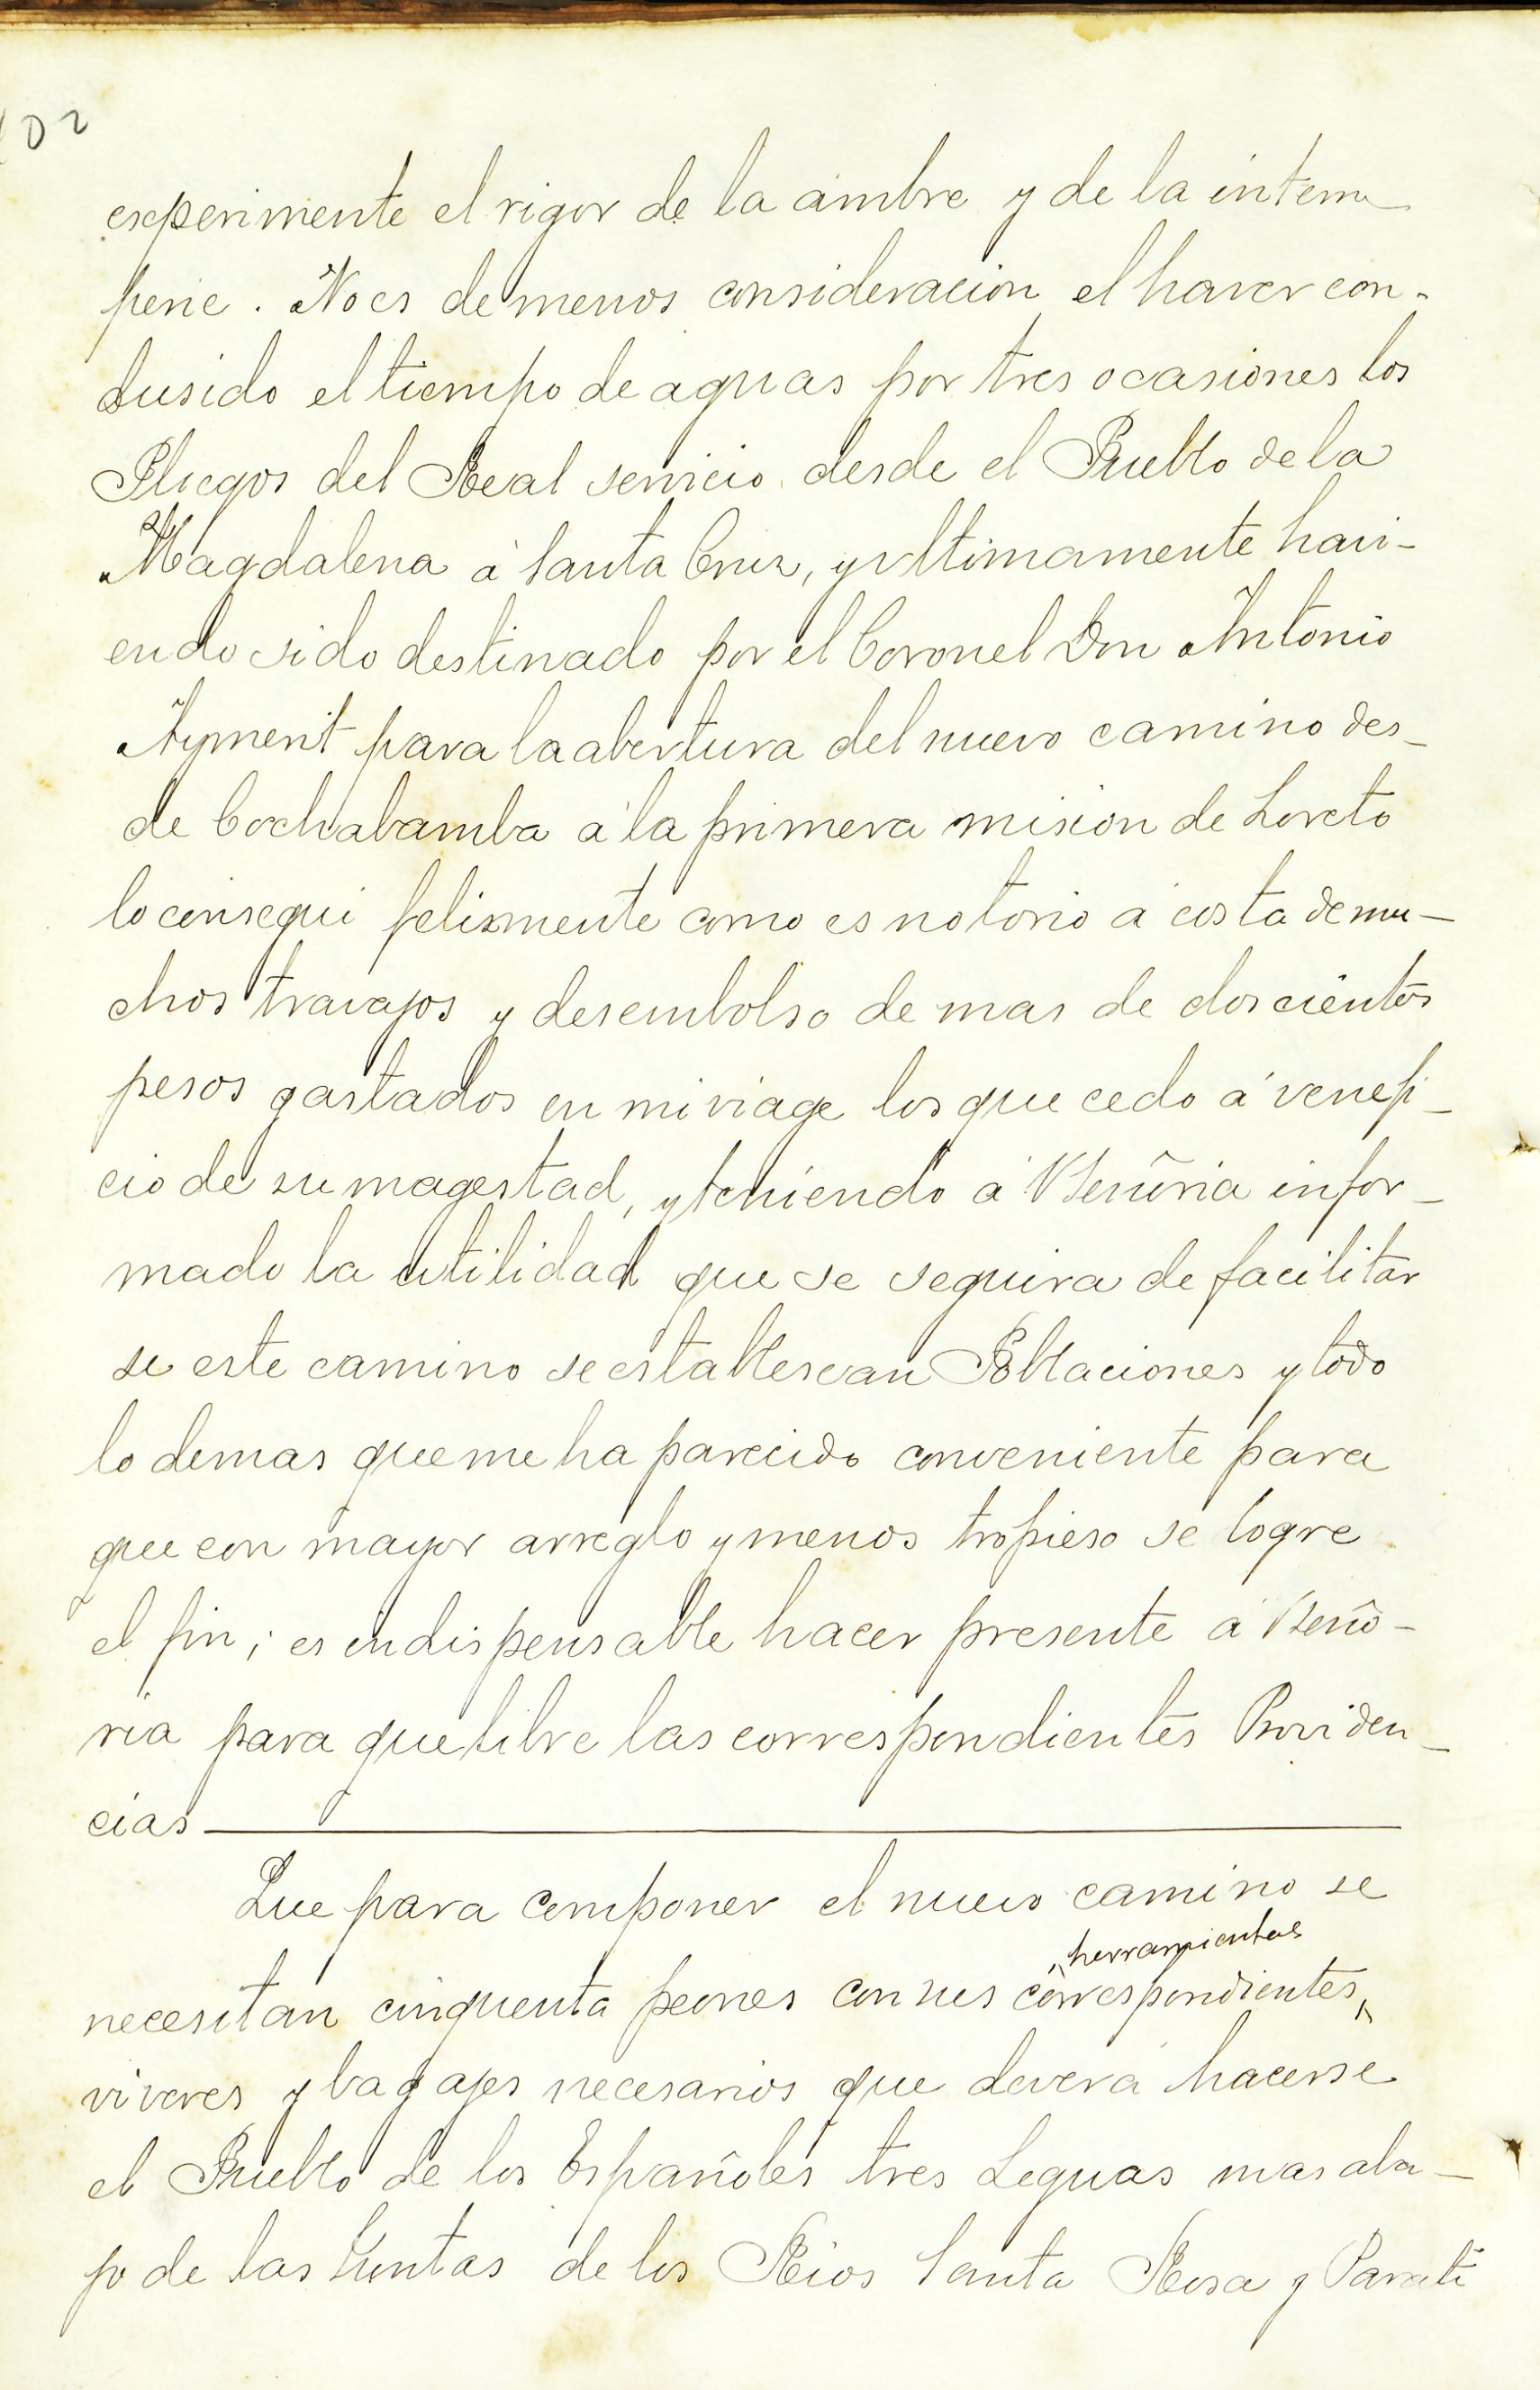 102
experimente el rigor de la ambre y de la intem
perie. No es de menos consideracion el haver con-
dusido el tiempo de aguas por tres ocasiones los
Pliegos del Real servicio desde el Pueblo de la
Magdalena á Santa Cruz, y ultimamente havi-
endo sido destinado por el Coronel Don Antonio
Ayment para la abertura del nuevo camino des-
de Cochabamba á la primera mision de Loreto
lo consegui felizmente como es notorio á costa de mu-
chos travajos y desembolso de mas de doscientos
pesos gastados en mi viage los que cedo á venefi-
cio de su magestad, y teniendo á VSeñoria infor-
mado la utilidad que se seguira de facilitar
se este camino se establescan Poblaciones y todo
lo demas que me ha parecido conveniente para
que con mayor arreglo y menos tropieso se logre
el fin; es indispensable hacer presente á VSeño-
ria para que libre las correspondientes Providen-
cias
Que para componer el nuevo camino se
herramientas
necesitan cinquenta peones con sus correspondientes,
viveres y bagajes necesarios que devera hacerse
el Pueblo de los Españoles tres Leguas mas aba-
jo de las Juntas de los Rios Santa Rosa y Parati